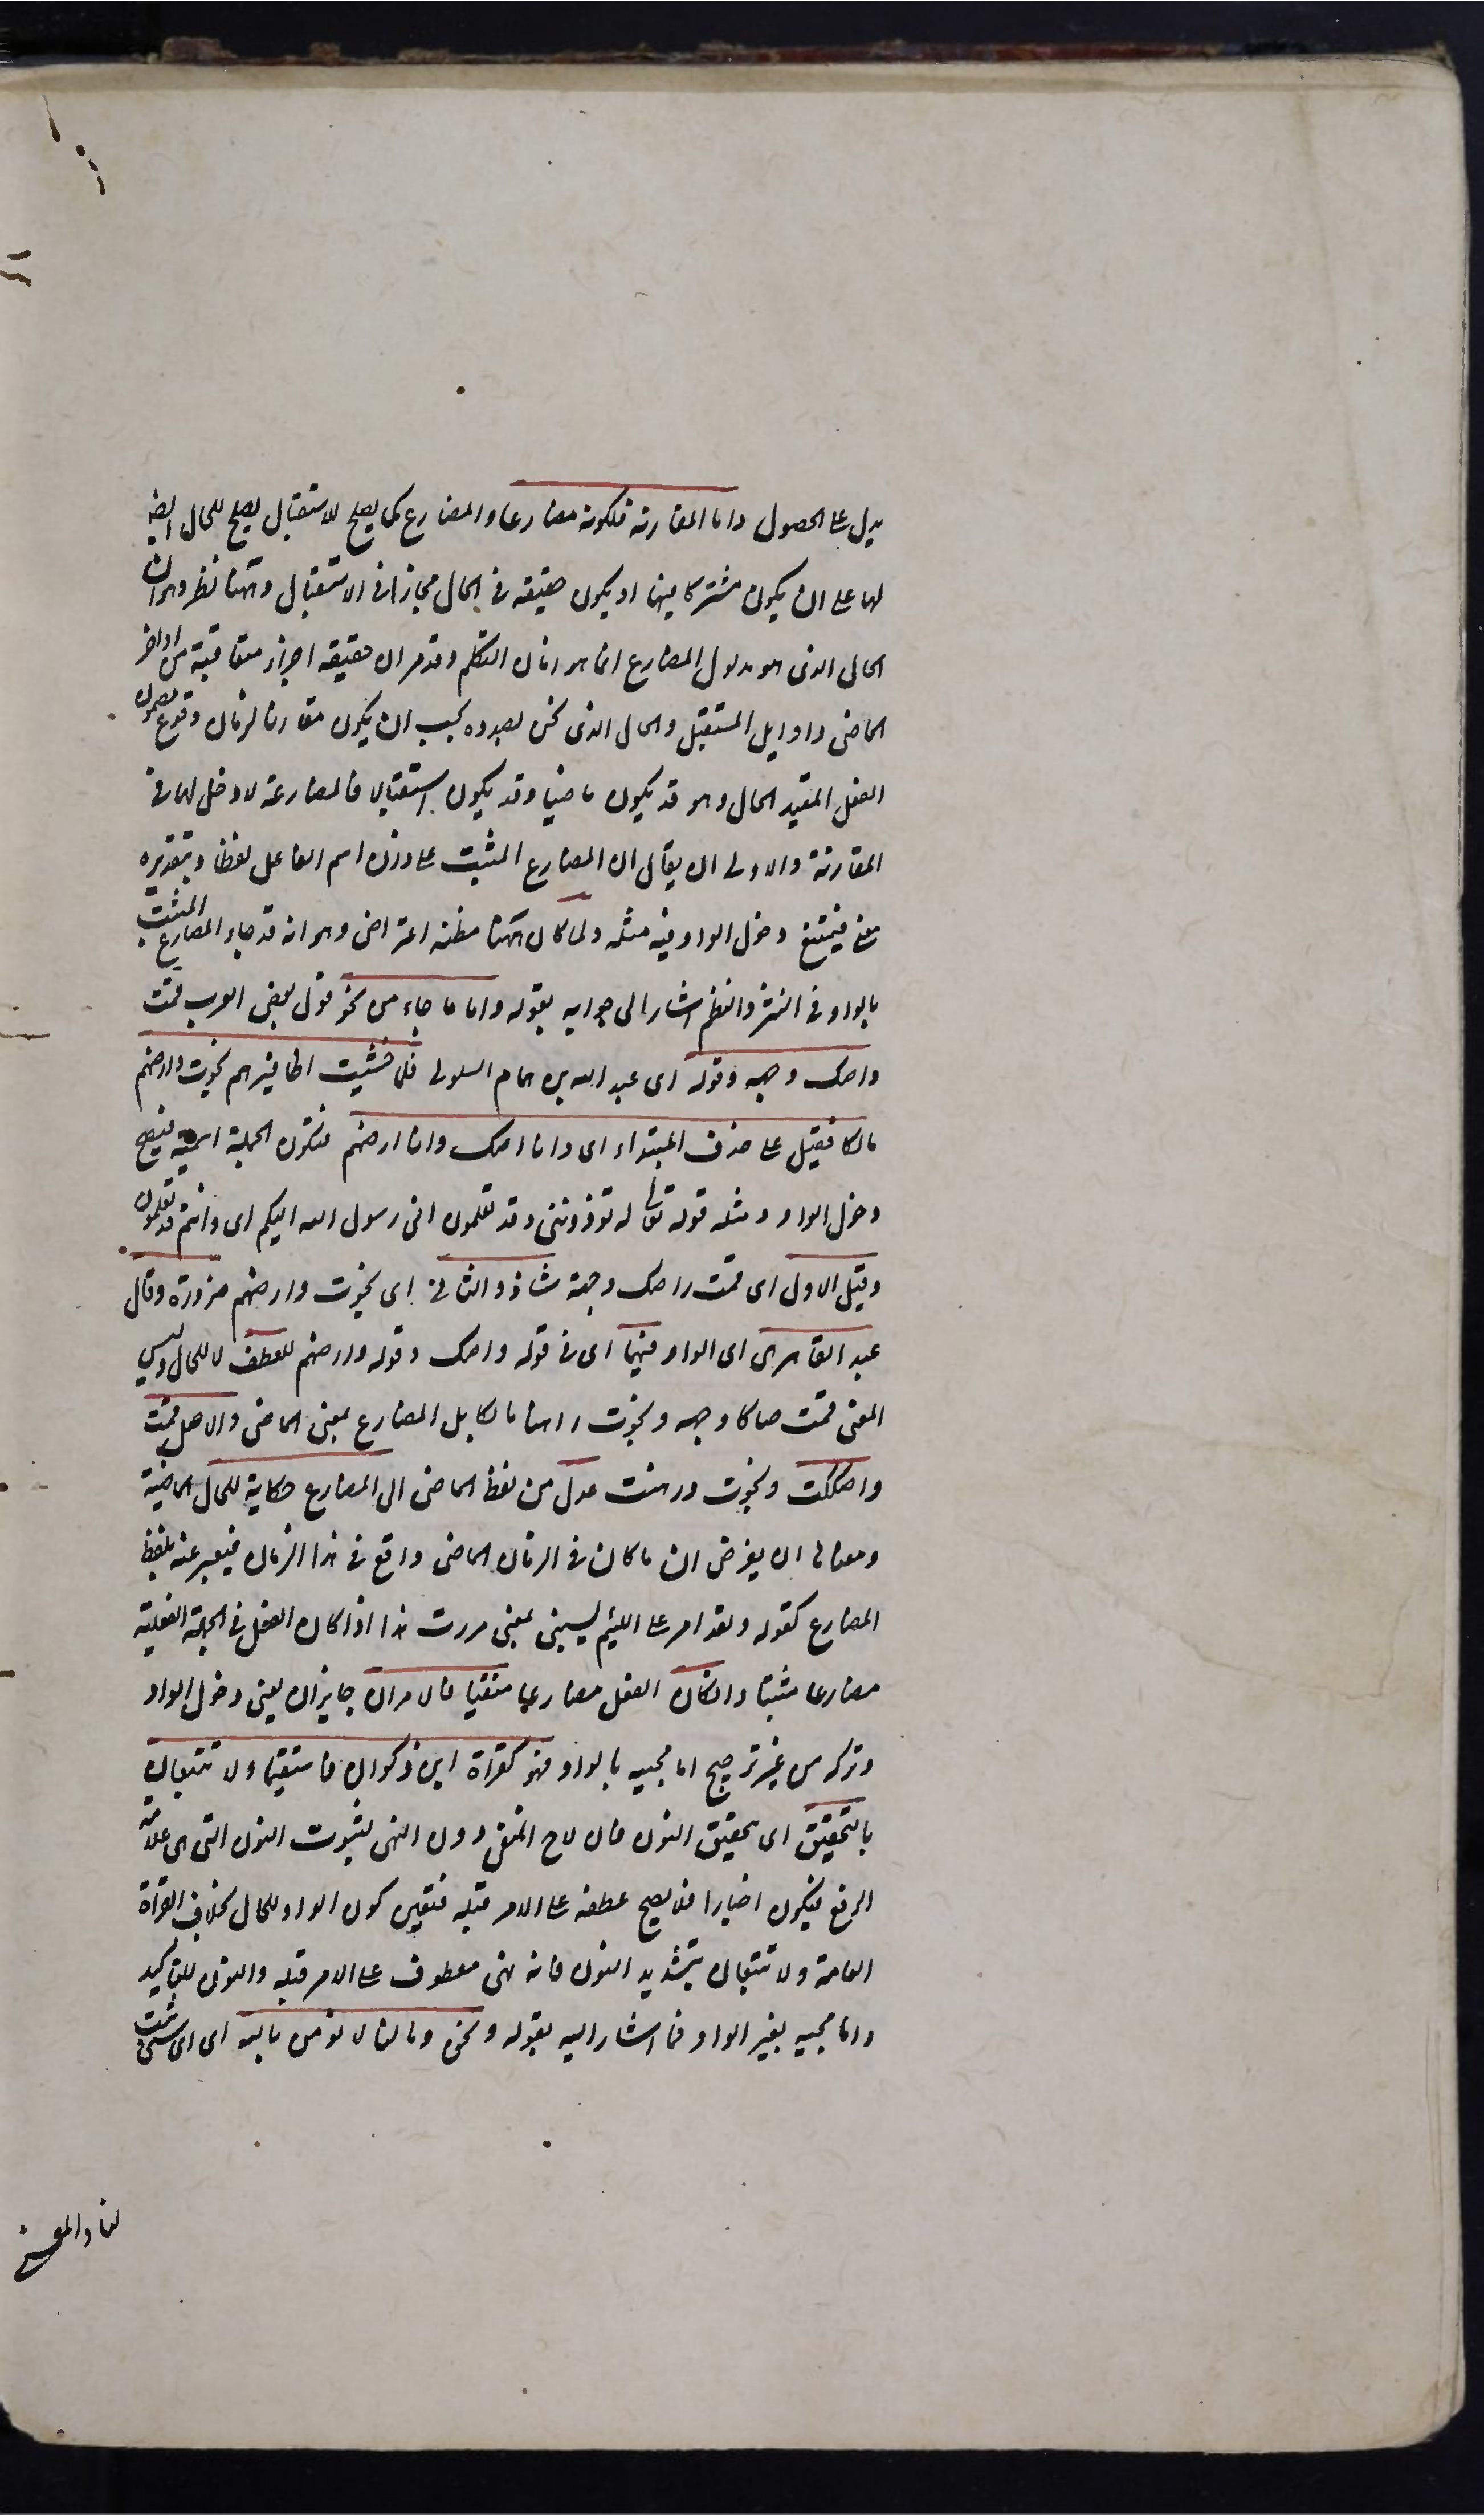 يدل على الحصول واما المقارنة فلكونه مضارعا والمضارع كما يصلح للاستقبال يصلح للحال ايضا
اما على ان يكون مشتركا بينهما او يكون حقيقة في الحال مجازا في الاستقبال وههنا نظر وهو ان
الحال الذى هو مدلول المضارع انما هو زمان التكلم وقد مر ان حقيقته اجزاء متعاقبة من اواخر
الماضى واوايل المستقبل والحال الذى نحن بصدده يجب ان يكون مقارنا لزمان وقوع مضمون
الفعل المقيد بالحال وهو قد يكون ماضيا وقد يكون استقبالا فالمضارعة لا دخل لها في
المقارنة والاولى ان يقال ان المضارع المثبت على وزن اسم الفاعل لفظا وبتقديره
معنى فيمتنع دخول الواو فيه مثله ولما كان ههنا مظنه اعتراض وهو انه قد جاء المضارع المثبت
بالواو في النثر والنظم اشار الى جوابه بقوله واما ما جاء من نحو قول بعض العرب قمت
واصك وجهه وقوله اى عبد الله بن همام السلولى فلما خشيت اظافيرهم نجوت وارهنهم
مالكا فقيل على حذف المبتداء اى وانا اصك وانا ارهنهم فتكون الجملة اسمية فيصح
دخول الواو ومثله قوله تعالى لم تؤذوننى وقد تعلمون انى رسول الله اليكم اى وانتم قد تعلمون
وقيل الاول اى قمت واصك وجهه شاذ والثانى اى نجوت وارهنهم ضرورة وقال
عبد القاهر هى اى الواو فيهما اى في قوله واصك وقوله وارهنهم للعطف لا للحال وليس
المعنى قمت صاكا وجهه ونجوت راهنا مالكا بل المضارع بمعنى الماضى والاصل قمت
وصككت ونجوت ورهنت عدل من لفظ الماضى الى المضارع حكاية للحال الماضية
ومعناها ان يفرض ان ما كان في الزمان الماضى واقع في هذا الزمان فيعبر عنه بلفظ
المضارع كقوله ولقد امر على اللئيم يسبنى بمعنى مررت هذا اذا كان الفعل في الجملة الفعلية
مضارعا مثبتا وان كان الفعل مضارعا منفيا فالامران جايزان يعنى دخول الواو
وتركه من غير ترجيح اما مجيئه بالواو فهو كقراءة ابن ذكوان فاستقيما ولا تتبعان
بالتخفيف اى تخفيف النون فان لا ح للنفى دون النهى لثبوت النون التى هى علامة
الرفع فيكون اخبارا فلا يصح عطفه على الامر قبله فتعين كون الواو للحال بخلاف القراءة
العامة ولا تتبعان بتشديد النون فانه نهى معطوف على الامر قبله والنون للتاكيد
واما مجيئه بغير الواو فما اشار اليه بقوله ونحو وما لنا لا نؤمن بالله اى اى شئ ثبت
لنا والمعنى